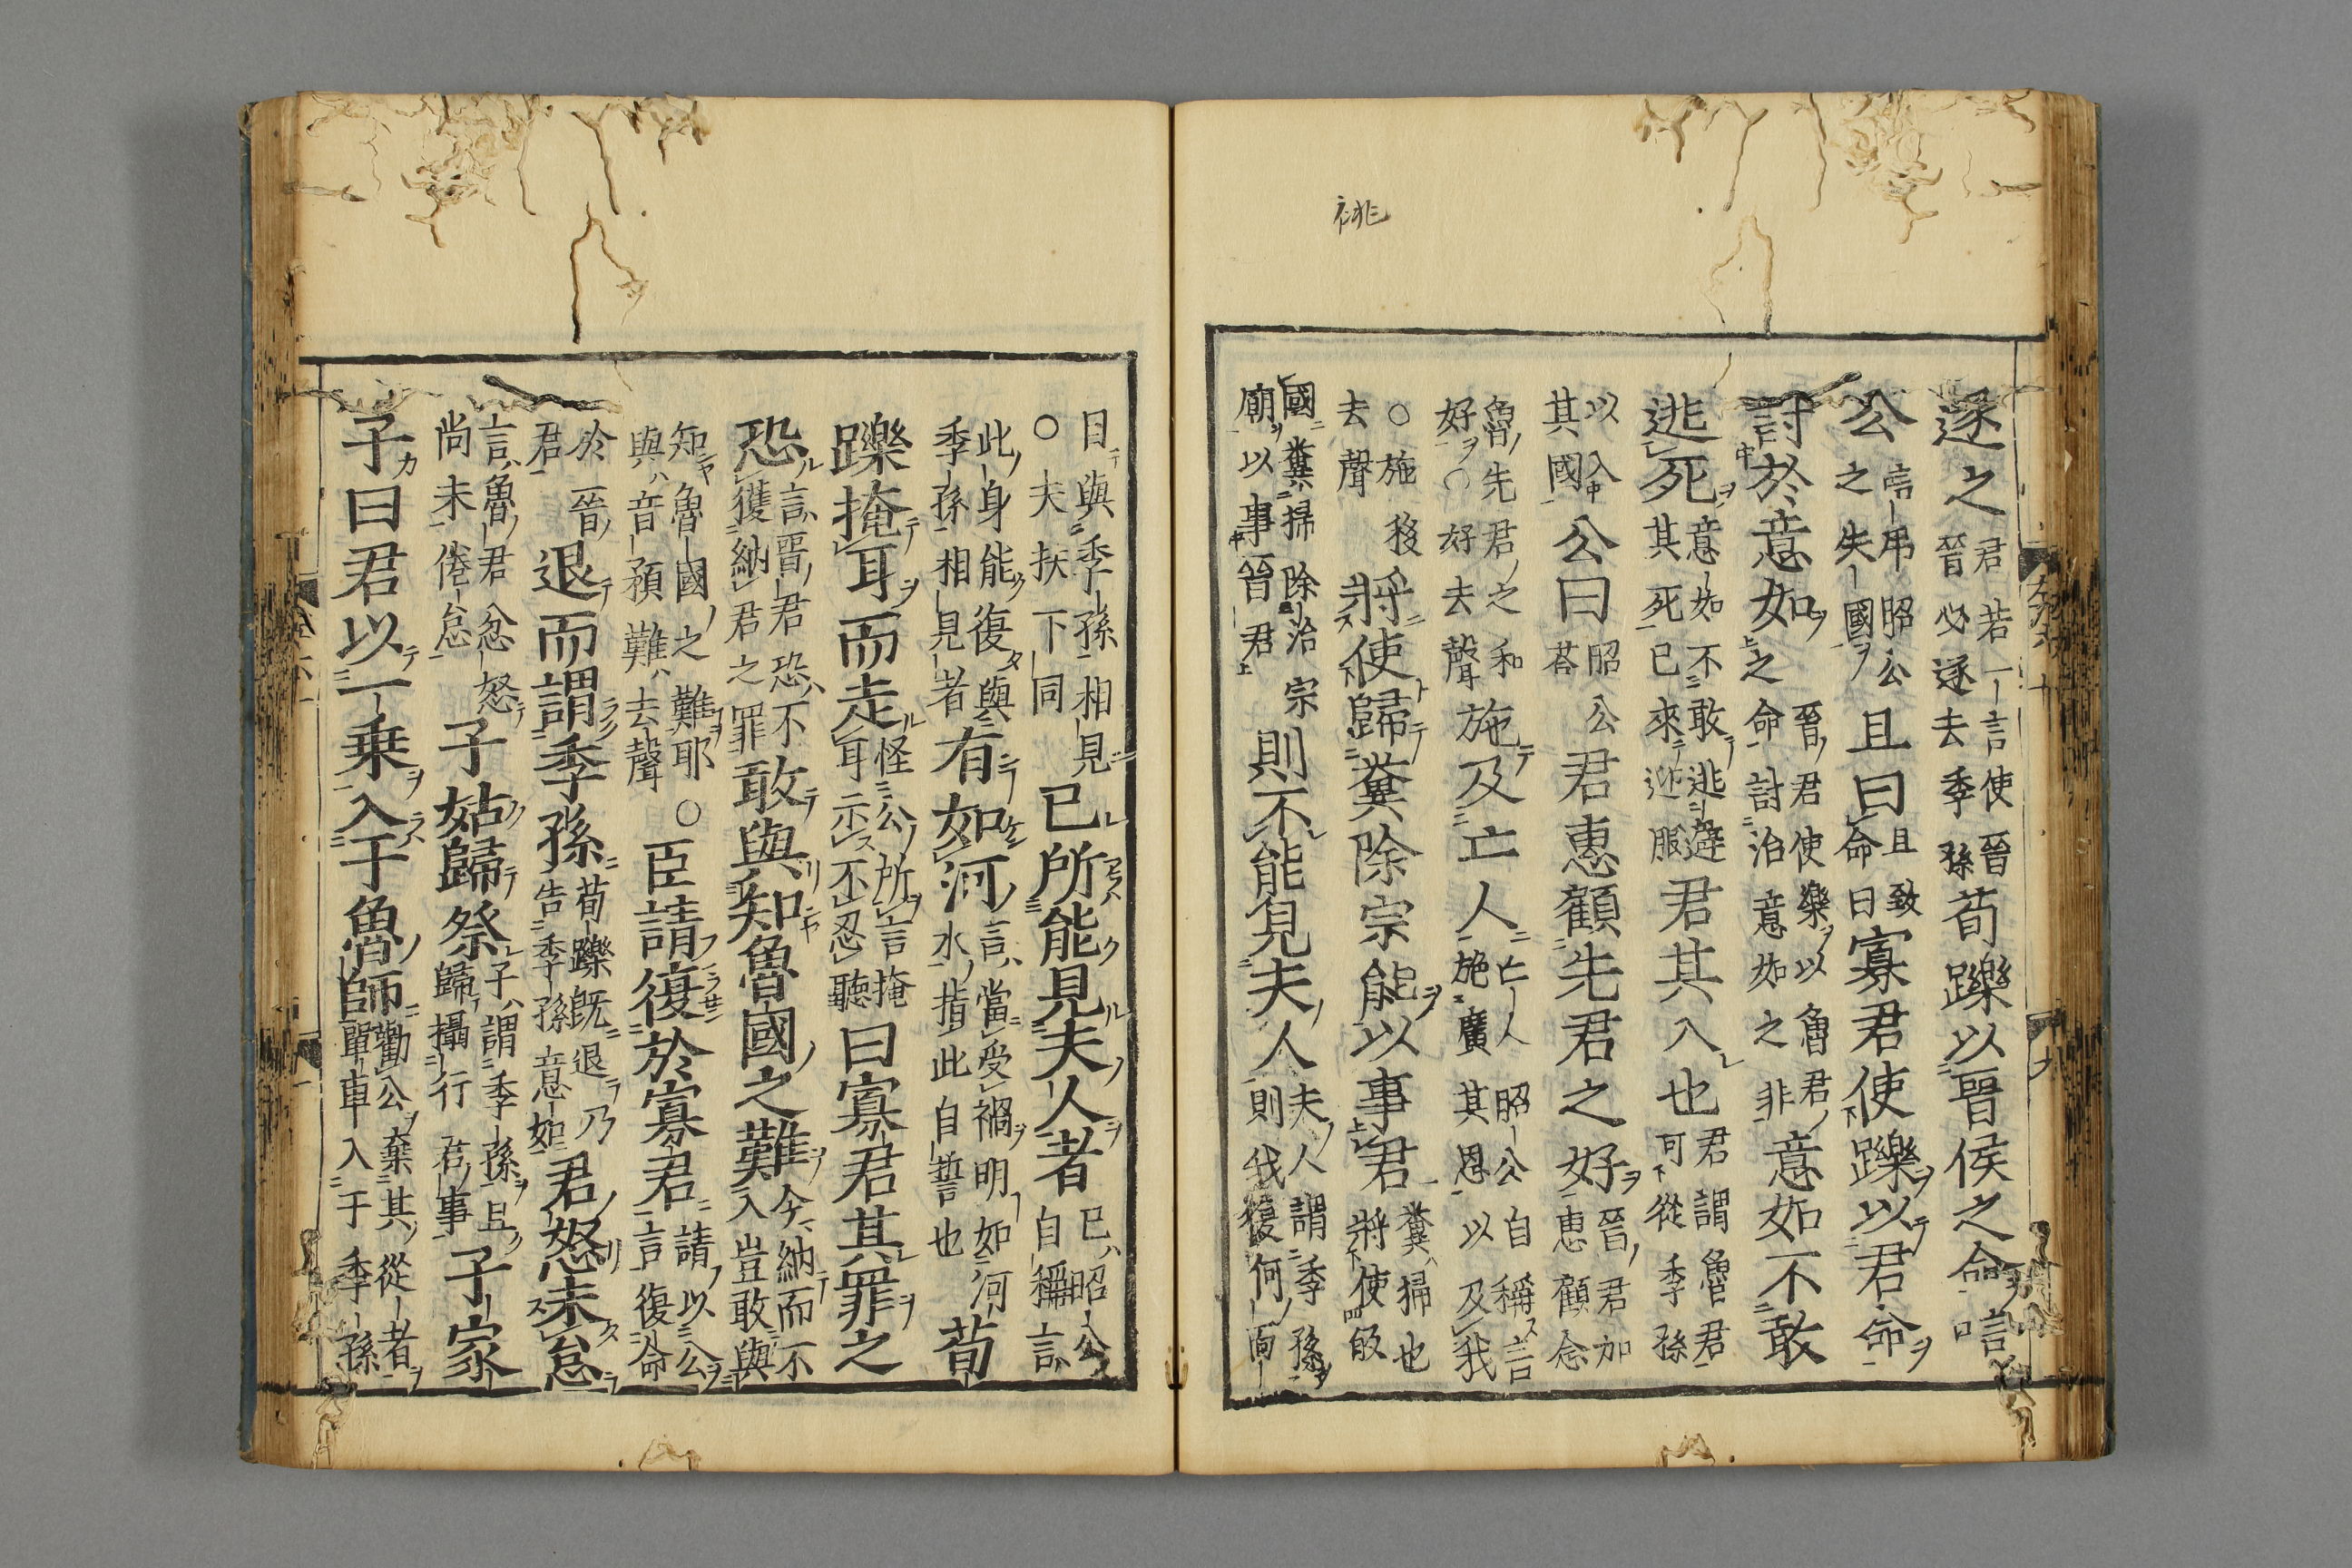 祧
逐之君若一言使晉晉必逐去季孫荀躒以晉侯之命唁
公唁弔昭公之失國且曰且致命曰寡君使躒以君命
討於意如晉君使樂以魯君之命討治意如之非意如不敢
逃死意如不敢逃避其死已來迎服君其入也君謂魯君可從季孫
以入其國公曰昭公荅君惠顧先君之好晉君加惠顧念
魯先君之和好○好去聲施及亡人亡人昭公自稱言施廣其恩以及我
○施移去聲將使歸糞除宗能以事君糞掃也將使皈
國糞掃除治宗廟以事晉君則不能見夫人夫人謂季孫則我復何面
目與季孫相見○夫扶下同已所能見夫人者已昭公自稱言
此身能復與季孫相見者有如河言當受禍明如河水指此自誓也荀
躒掩耳而走怪公所言掩耳示不忍聽曰寡君其罪之
恐言晉君恐不獲納君之罪敢與知魯國之難今納而不入豈敢與
知魯國之難耶○與音預難去聲臣請復於寡君請以公言復命
於晉君退而謂季孫荀躒既退乃告季孫意如君怒未怠
言魯君忿怒尚未倦怠子姑歸祭子謂季孫且歸攝行君事子家
子曰君以一乗入于魯師勸公棄其從者單車入于季孫